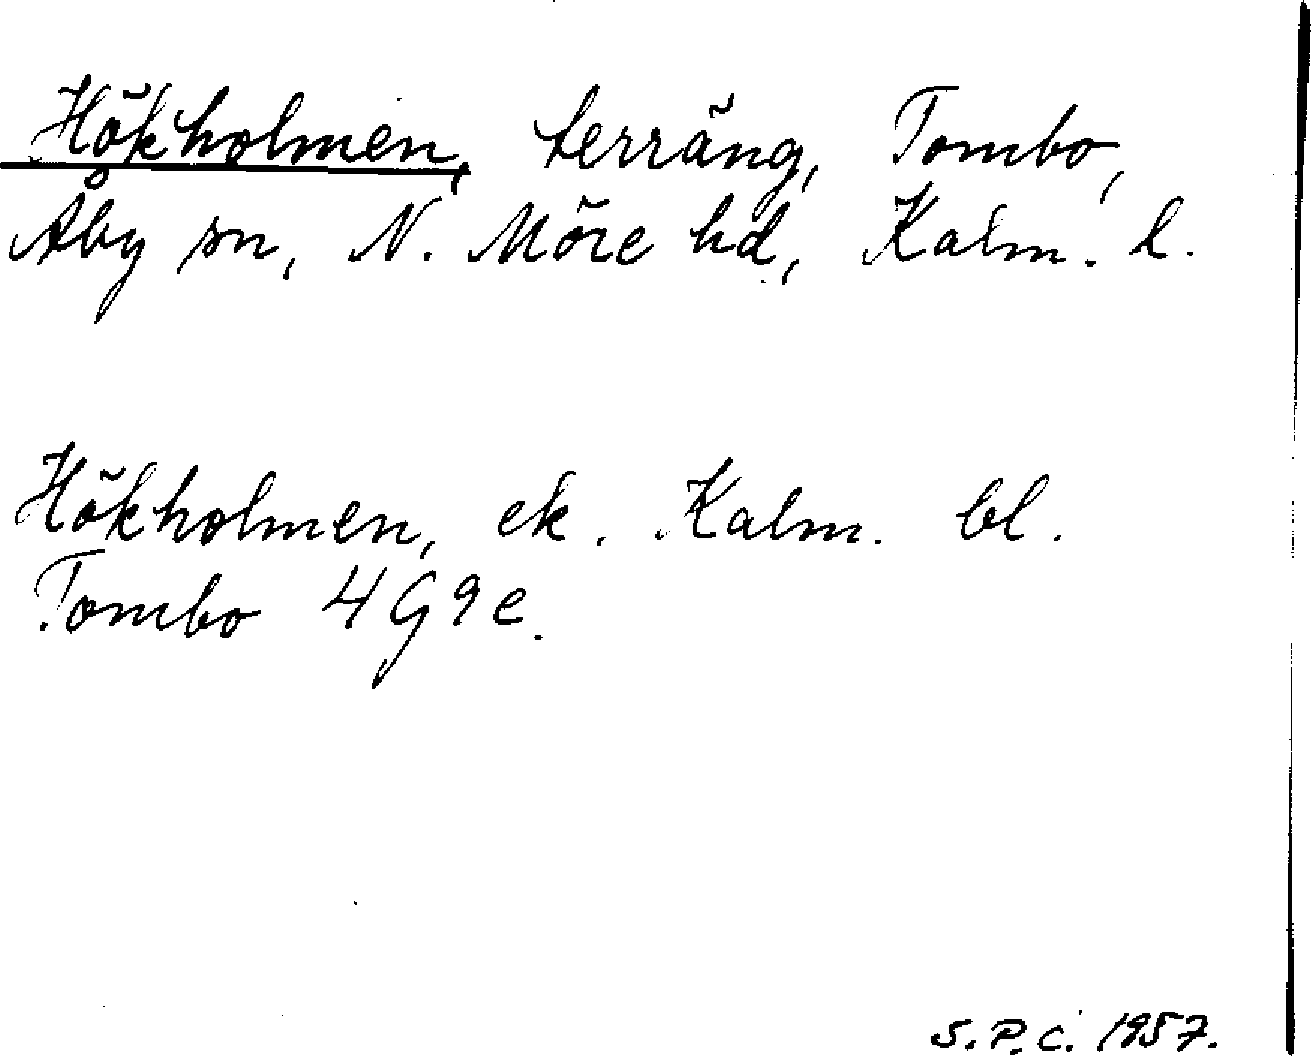 Hökholmen, terräng, Tombo,
Åby sn, N. Möre hd, Kalm. l.
Hökholmen, ek. Kalm. bl.
Tombo 4G9e.
S.P.C. 1957.